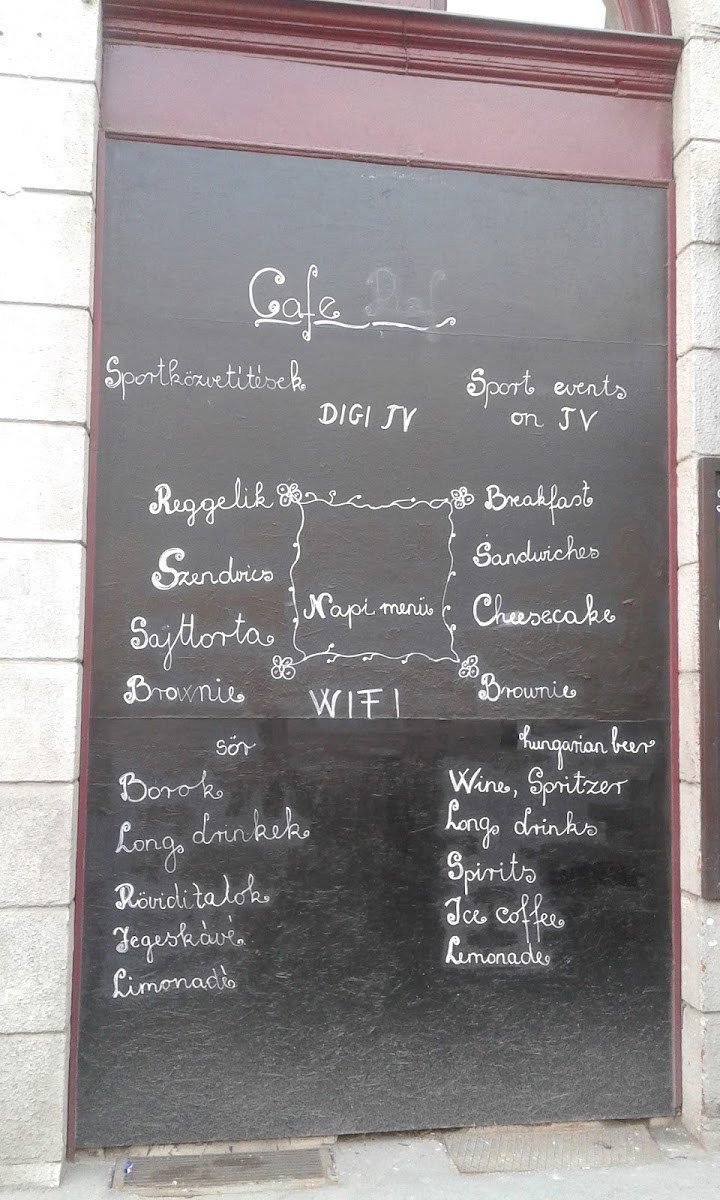 Cafe
Sportközvetítések
DIGI TV
Sport events
on TV
Reggelik
Szendvics
Sajttorta
Brownie
Napi menü
WIFI
Breakfast
Sandwiches
Cheesecake
Brownie
sör
Borok
Long drinkek
Röviditalok
Jegeskávé
Limonadé
hungarian beer
Wine, Spritzer
Long drinks
Spirits
Ice coffee
Lemonade